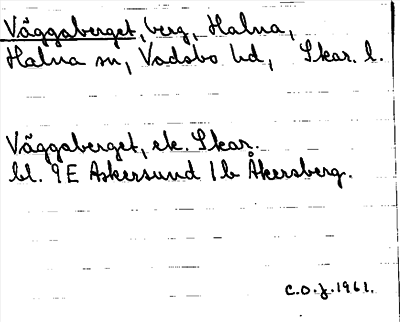 Väggaberget, berg, Halna,
Halna sn, Vadsbo hd, Skar. l.
Väggaberget, ek. Skar.
bl. 9E Askersund 1b Åkersberg.
C.O.J. 1961.